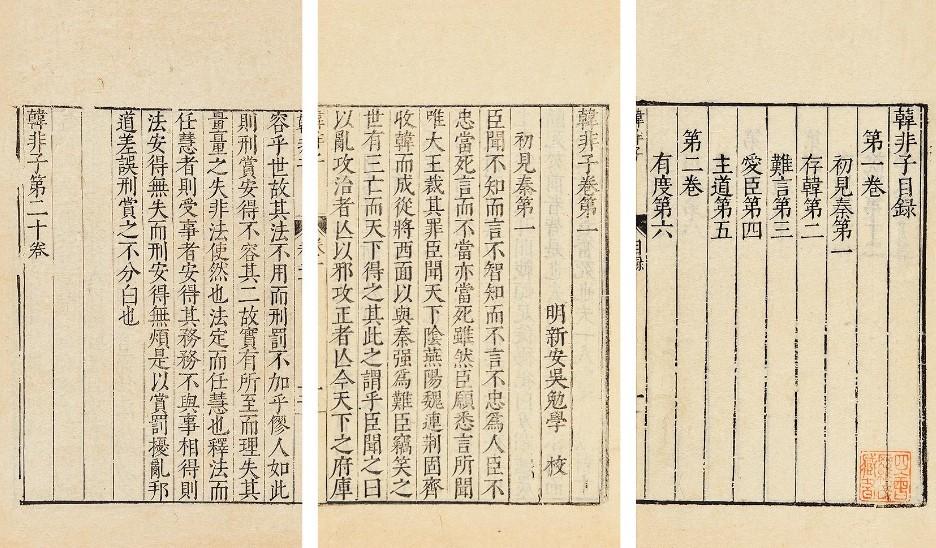 韓非子目録
第一卷
初見秦第一
存韓第二
難言第三
愛臣第四
主道第五
第二卷
有度第六
韓非子卷第一
明新安吳勉學 校
初見秦第一
臣聞不知而言不智知而不言不忠爲人臣不
忠當死言而不當亦當死雖然臣願悉言所聞
唯大王裁其罪臣聞天下陰燕陽魏連荆固齊
收韓而成從將西面以與秦强爲難臣竊笑之
世有三亡而天下得之其此之謂乎臣聞之曰
以亂攻治者亾以邪攻正者亾今天下之府庫
容乎世故其法不用而刑罰不加乎僇人如此
則刑賞安得不容其二故實有所至而理失其
量量之失非法使然也法定而任慧也釋法而
任慧者則受事者安得其務務不與事相得則
法安得無失而刑安得無煩是以賞罰擾亂邦
道差誤刑賞之不分白也
韓非子第二十卷